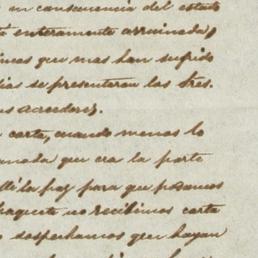 en consecuencia del estado
enteramente arruinada,
que mas han sufrido
se presenteran los tres.
acreedores.
carta, cuando menos lo
que era la parte
la paz para que pasemos
paquete no recibimos carta
sospechamos que hayan